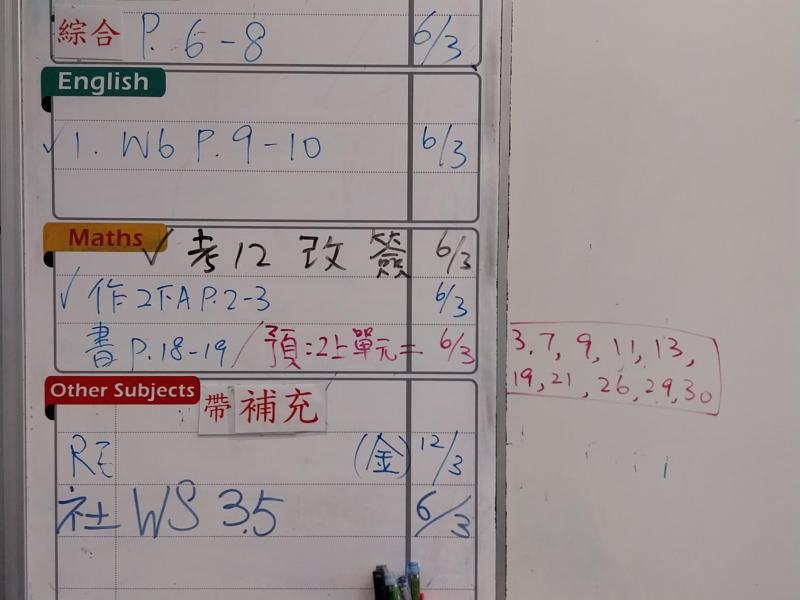 綜合 P. 6-8 6/3
English
✓1. Wb P. 9-10 6/3
Maths
✓考12 改 簽 6/3
✓作2下A P.2-3 6/3
書 P.18-19 / 預:2上單元二 6/3
3, 7, 9, 11, 13,
19, 21, 26, 29, 30
Other Subjects
帶 補充
RE (金) 12/3
社 WS 3.5 6/3